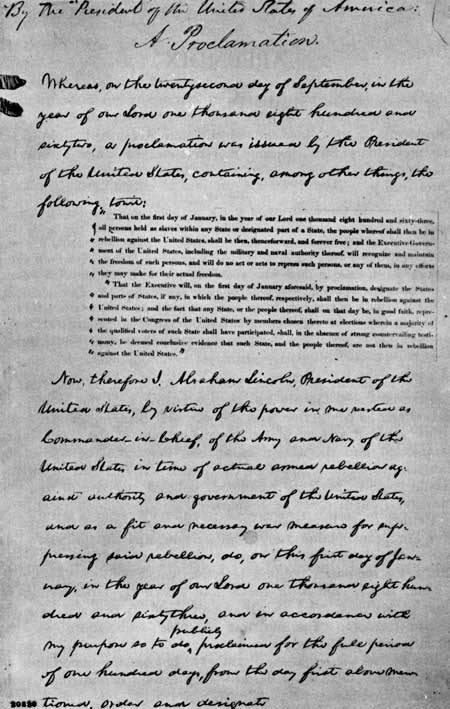 By the President of the United States of America:
A Proclamation.
Whereas, on the twentysecond day of September, in the
year of our Lord one thousand eight hundred and
sixtytwo, a proclamation was issued by the President
of the United States, containing, among other things, the
following, towit:
" That on the first day of January, in the year of our Lord one thousand eight hundred and sixty-three,
" all persons held as slaves within any State or designated part of a State, the people whereof shall then be in
" rebellion against the United States, shall be then, thenceforward, and forever free; and the Executive Govern-
" ment of the United States, including the military and naval authority thereof, will recognize and maintain
" the freedom of such persons, and will do no act or acts to repress such persons, or any of them, in any efforts
" they may make for their actual freedom.
" That the Executive will, on the first day of January aforesaid, by proclamation, designate the States
" and parts of States, if any, in which the people thereof, respectively, shall then be in rebellion against the
" United States; and the fact that any State, or the people thereof, shall on that day be, in good faith, repre-
" sented in the Congress of the United States by members chosen thereto at elections wherein a majority of
" the qualified voters of such State shall have participated, shall, in the absence of strong countervailing testi-
" mony, be deemed conclusive evidence that such State, and the people thereof, are not then in rebellion
" against the United States."
Now, therefore I, Abraham Lincoln, President of the
United States, by virtue of the power in me vested as
Commander-in-Chief, of the Army and Navy of the
United States in time of actual armed rebellion ag-
ainst authority and government of the United States,
and as a fit and necessary war measure for sup-
pressing said rebellion, do, on this first day of Jan-
uary, in the year of our Lord one thousand eight hun-
dred and sixtythree, and in accordance with
my purpose so to do, publicly proclaimed for the full period
of one hundred days, from the day first above men
20820 tioned, order and designate